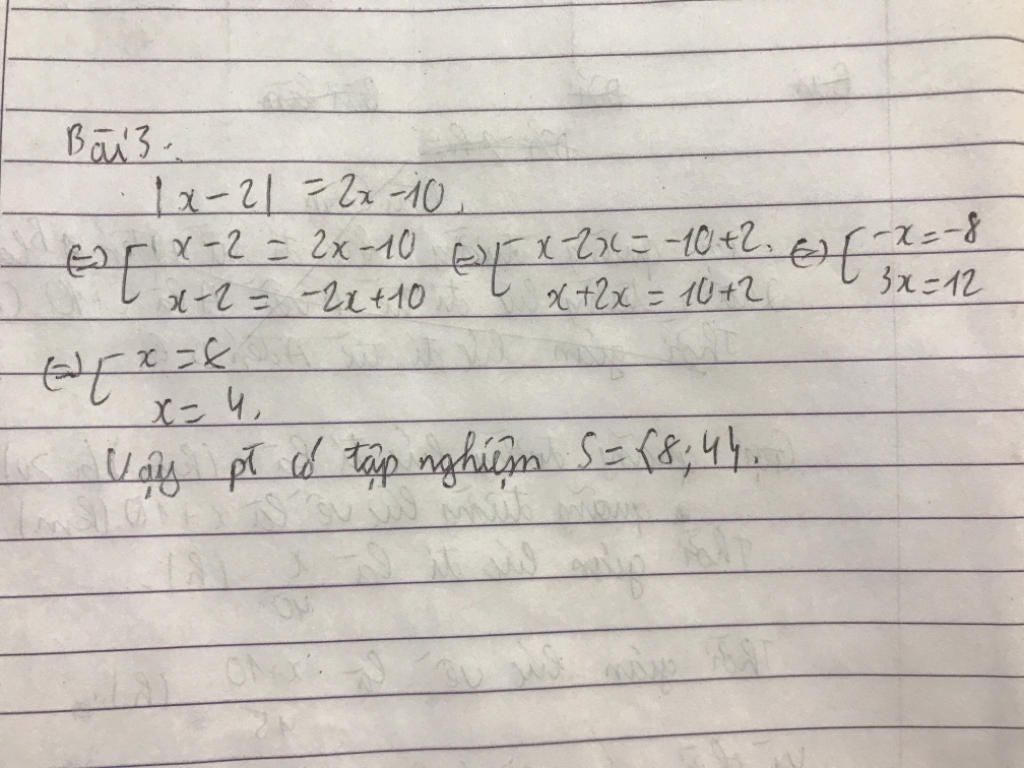 Bài 3:
|x-2| = 2x-10.
⇔ [ x-2 = 2x-10 ⇔ [ x-2x = -10+2. ⇔ [ -x = -8
x-2 = -2x+10 x+2x = 10+2 3x = 12
⇔ [ x = 8
x = 4.
Vậy pt có tập nghiệm S = {8; 4}.